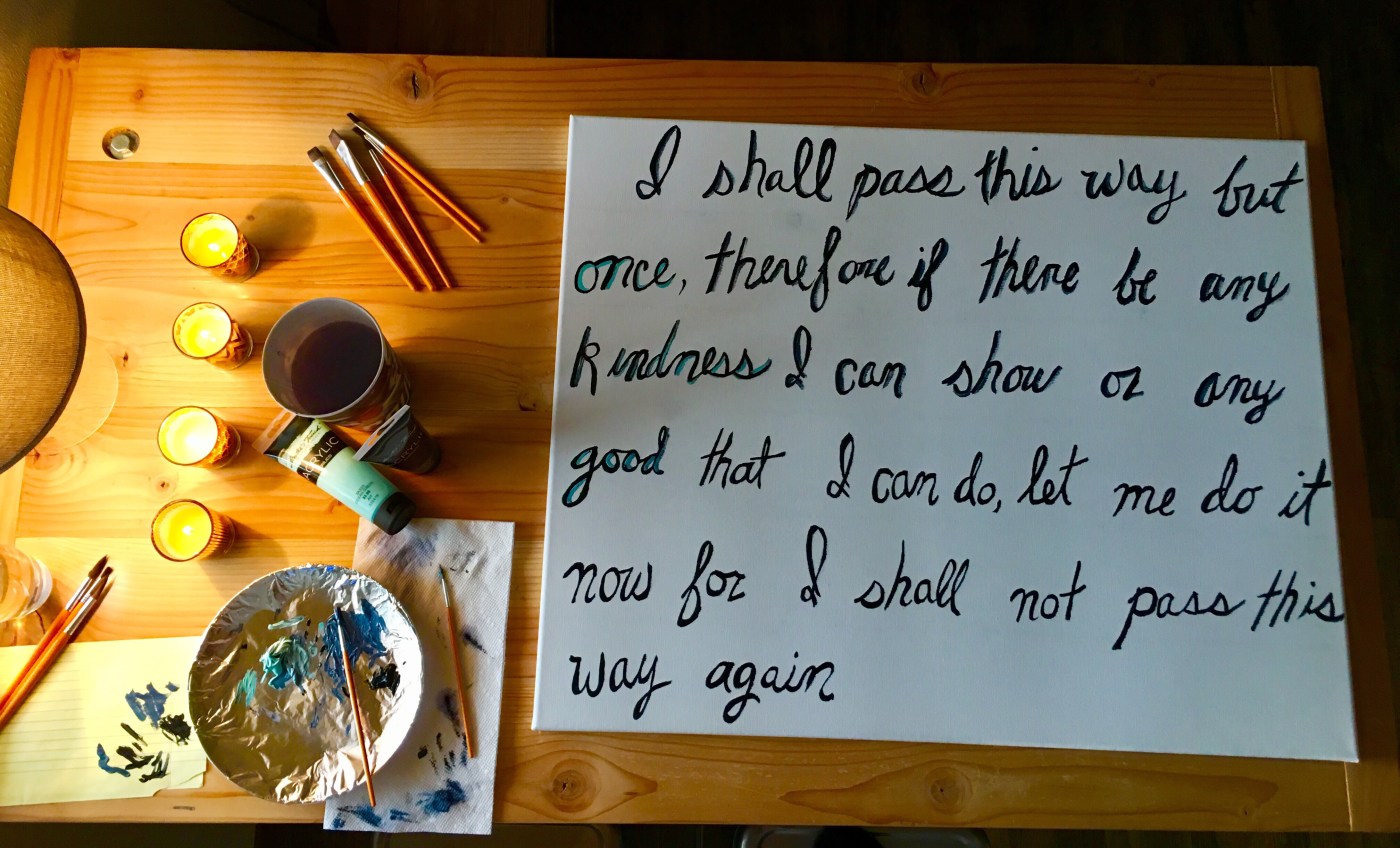 I shall pass this way but
once, therefore if there be any
kindness I can show or any
good that I can do, let me do it
now for I shall not pass this
way again
ACRYLIC